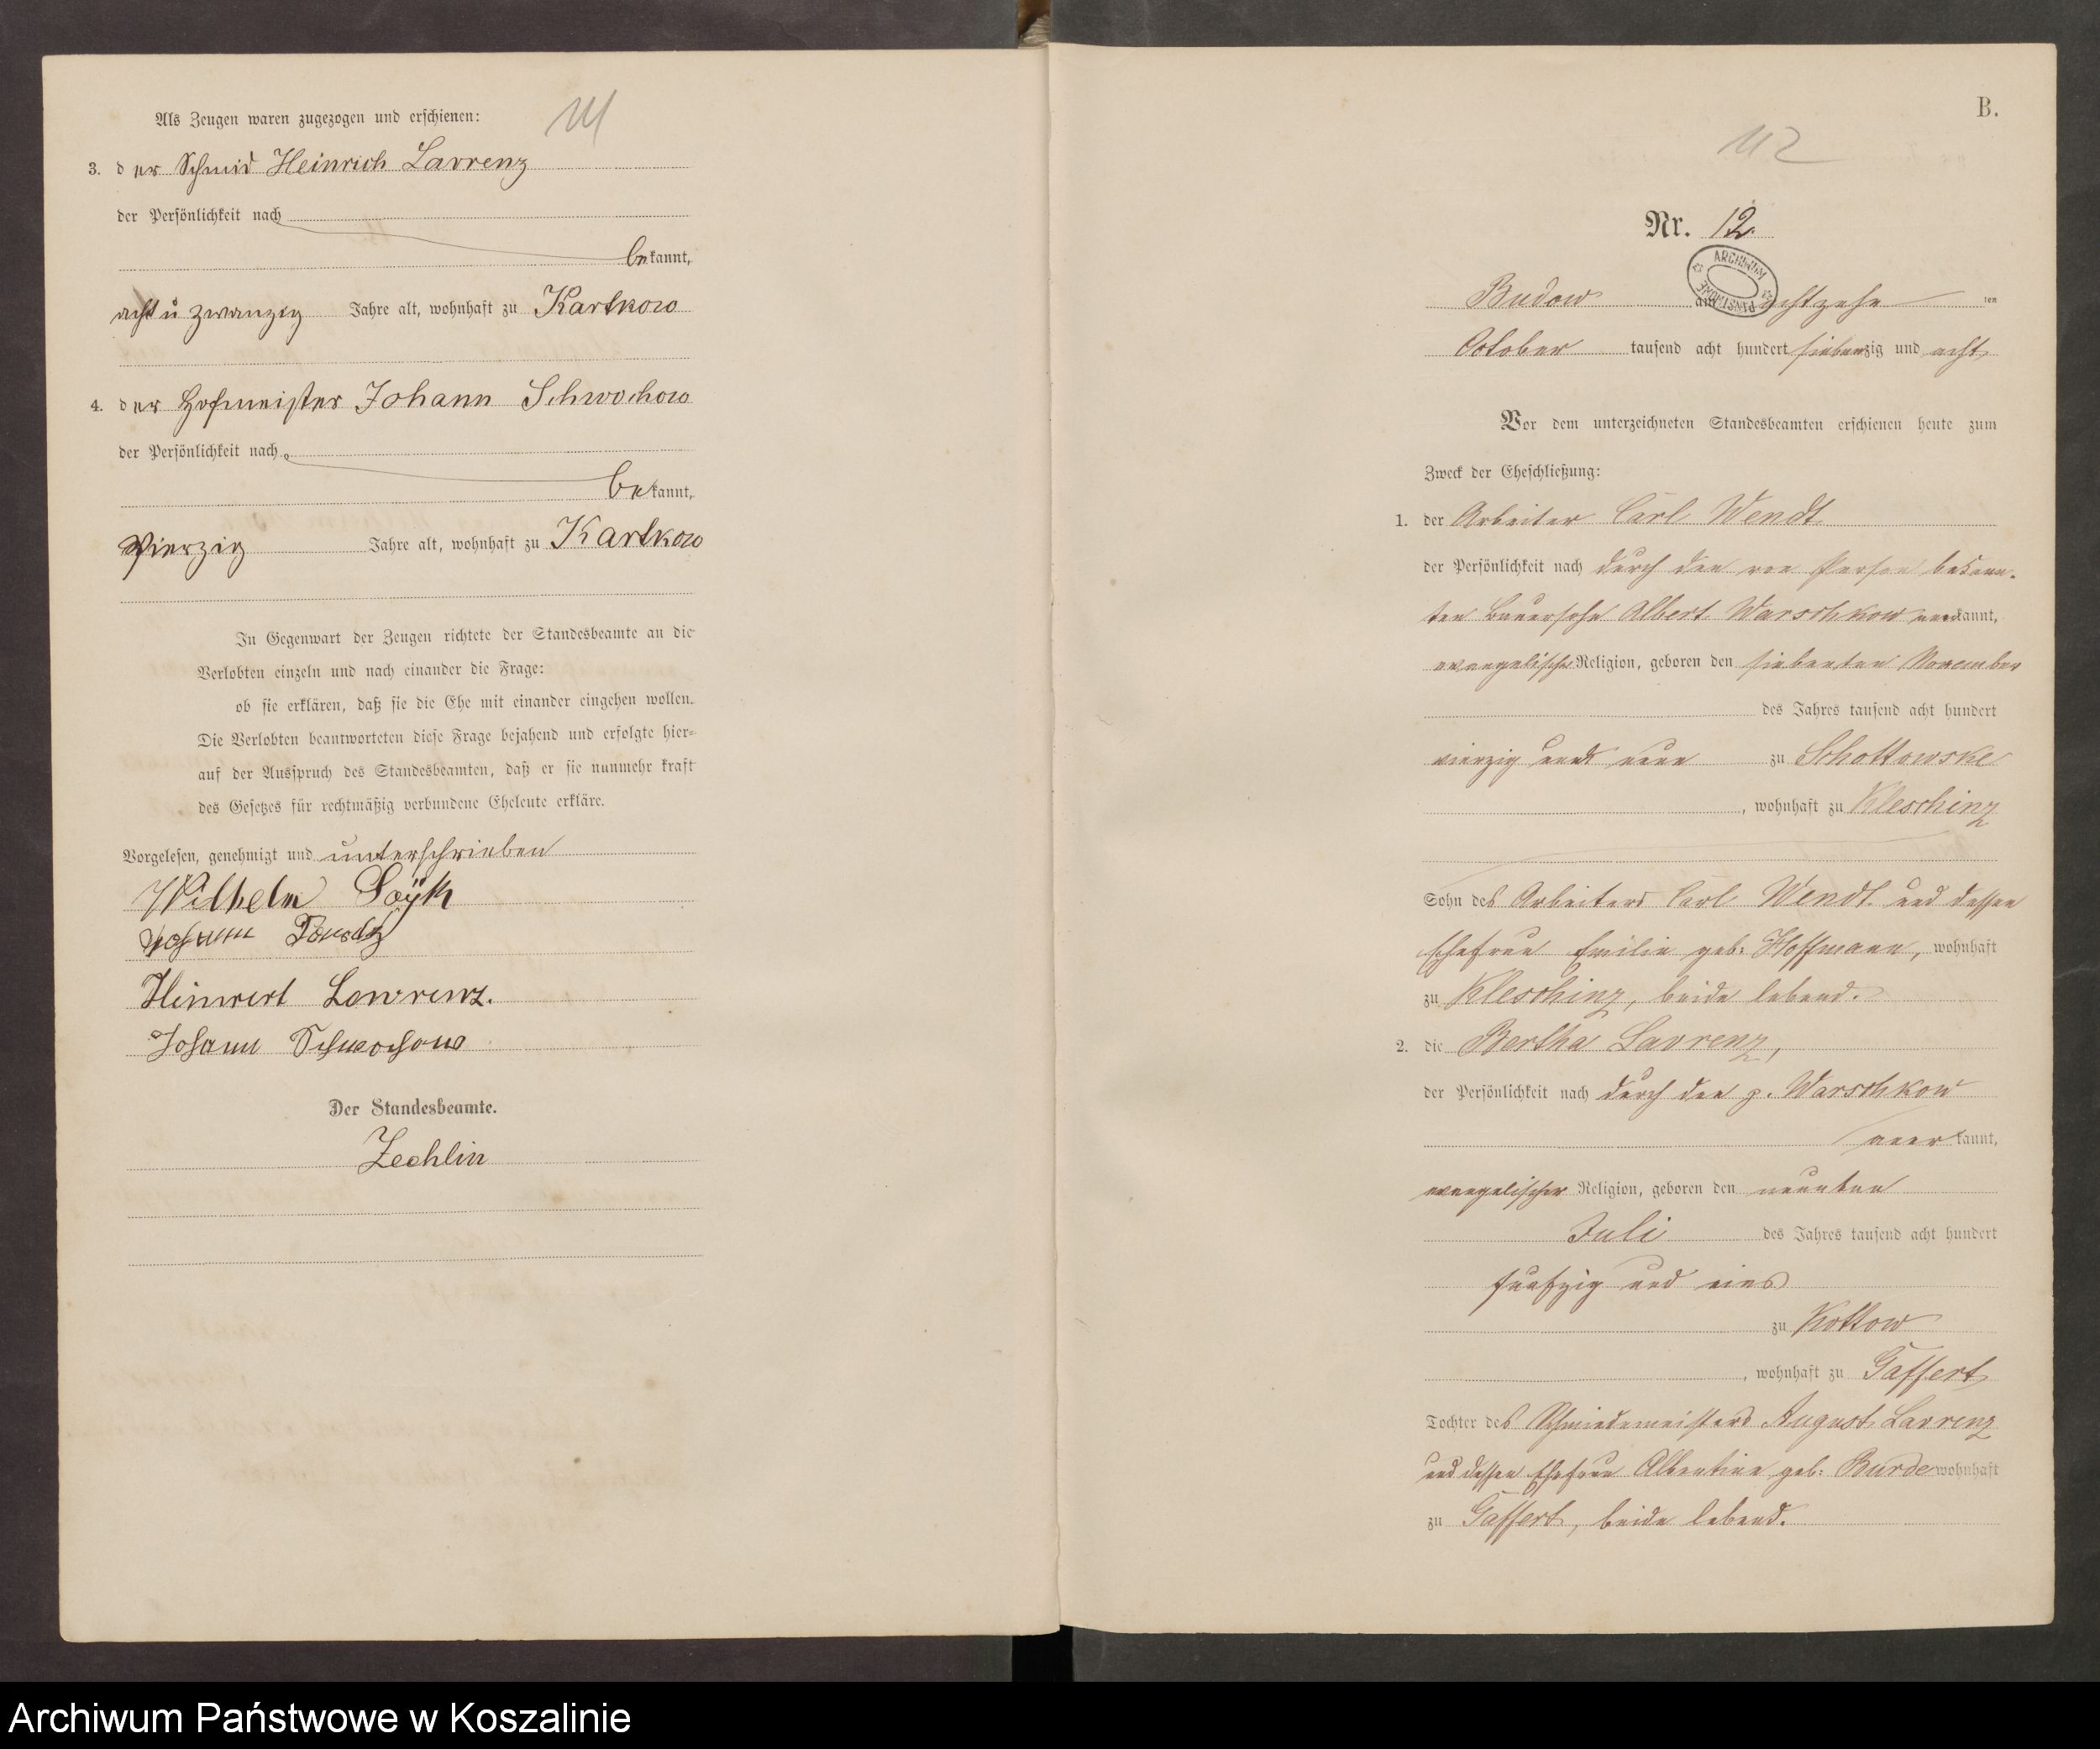 Als Zeugen waren zugezogen und erschienen:
111
3. der Schmid Heinrich Lavrenz
der Persönlichkeit nach
bekannt,
acht u zwanzig Jahre alt, wohnhaft zu Kartkow
4. der Hofmeister Johann Schwochow
der Persönlichkeit nach
bekannt,
Vierzig Jahre alt, wohnhaft zu Kartkow
In Gegenwart der Zeugen richtete der Standesbeamte an die
Verlobten einzeln und nach einander die Frage:
ob sie erklären, daß sie die Ehe mit einander eingehen wollen.
Die Verlobten beantworteten diese Frage bejahend und erfolgte hier-
auf der Ausspruch des Standesbeamten, daß er sie nunmehr kraft
des Gesetzes für rechtmäßig verbundene Eheleute erkläre.
Vorgelesen, genehmigt und unterschrieben
Wilhelm
Johann Schwochow
Der Standesbeamte.
Zechlin
B.
112
Nr. 12.
ARCHIWUM
Budow am achtzehn ten
October tausend acht hundert siebenzig und acht
Vor dem unterzeichneten Standesbeamten erschienen heute zum
Zweck der Eheschließung:
1. der Arbeiter Carl Wendt
der Persönlichkeit nach durch den von Person bekann-
ten Bauersohn Albert Warschkow anerkannt,
evangelischer Religion, geboren den siebenten November
des Jahres tausend acht hundert
vierzig und neun zu Schottowske
, wohnhaft zu Kleschinz
Sohn des Arbeiters Carl Wendt und dessen
Ehefrau Emilie geb: Hoffmann, wohnhaft
zu Kleschinz, beide lebend.
2. die Bertha Lavrenz,
der Persönlichkeit nach durch den p. Warschkow
anerkannt,
evangelischer Religion, geboren den neunten
Juli des Jahres tausend acht hundert
funfzig und eins
zu Kottow
, wohnhaft zu Gaffert
Tochter des Schmiedemeisters August Lavrenz
und dessen Ehefrau Albertine geb: Burde wohnhaft
zu Gaffert, beide lebend.
Archiwum Państwowe w Koszalinie